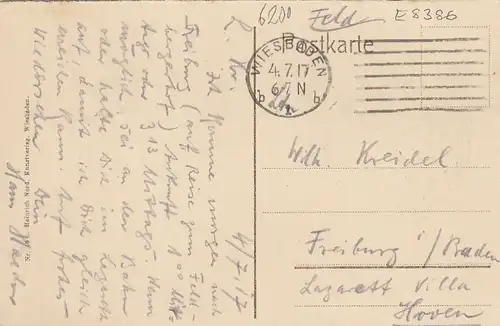 6200
E 8386
Feld
Postkarte
WIESBADEN
4.7.17
6-7 N
b b
4/7.17
L.
Ich komme morgen nach
Freiburg (auf Reise zum Feld-
) Ankunft 1 00 Mitt-
ags oder 3 13 Mittags. Wenn
möglich, sei an der Bahn
oder halte Dich im Lazarett
auf, damit ich Dich gleich
kann. Auf frohes
Wiedersehen Dein
Hans
Heinrich Nund, Kunstverlag, Wiesbaden.
Wilh. Kreidel.
Freiburg i/Baden
Lazarett Villa
Hoven